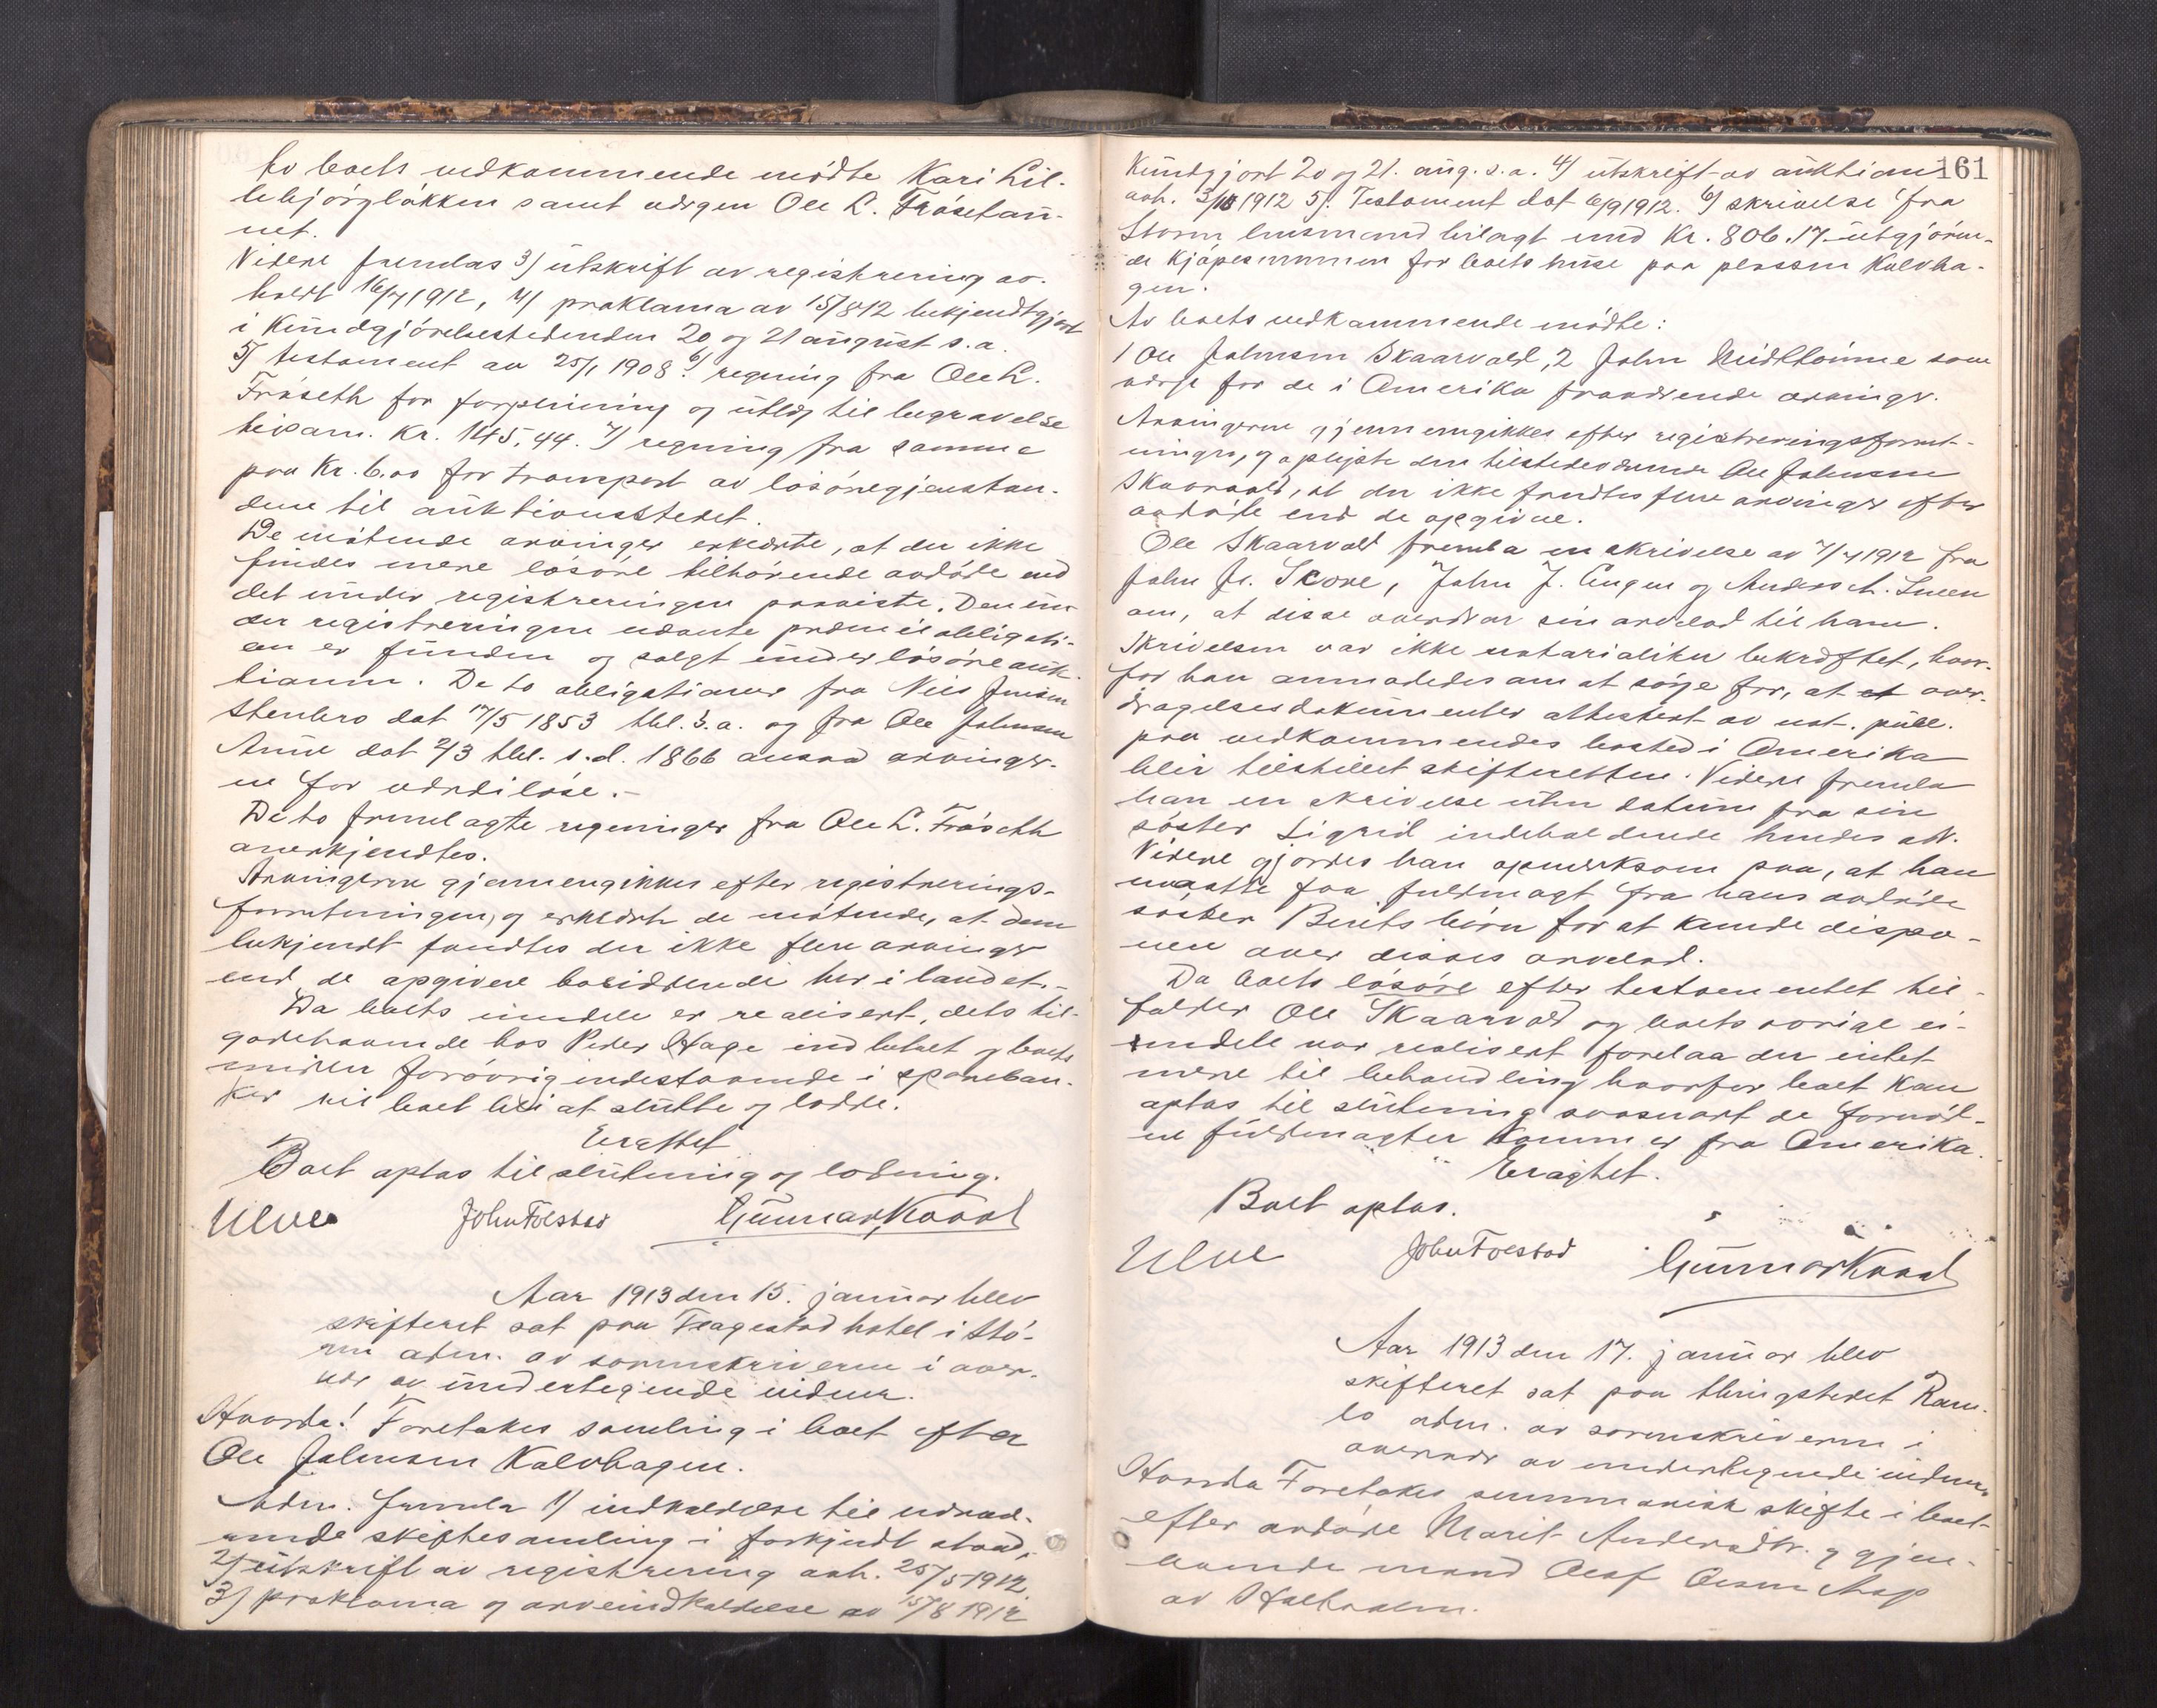 Av boets vedkommende mödte Kari Lil-
lebjörgløkken samt værgen Ole L. Frösetaun-
net.
Videre fremlas 3) utskrift av registrering av-
holdt 16/7 1912, 4) proklama av 15/8 12 bekjendtgjort
i Kundgjörelsestidenden 20 og 21 august s.a.
5) testament av 25/1 1908. 6) regning fra Ole L.
Fröseth for forpleining og utlæg til begravelse
tilsam. Kr. 145,44. 7) regning fra samme
paa Kr. 6.00 for transport av lösöregjenstan-
dene til auktionsstedet.
De mötende arvinger erklærte, at der ikke
findes mere lösöre tilhörende avdöde end
det under registreringen paaviste. Den un-
der registreringen nævnte præmieobligati-
on er funden og solgt under lösöreauk-
tionen. De to obligationer fra Nils Jensen
Stenbro dat 17/5 1853 tbl. s.a. og fra Ole Johnsen
Aune dat 2/3 tbl. s.d. 1866 ansaa arvinger-
ne for værdilöse.-
De to fremlagte regninger fra Ole L. Fröseth
anerkjendtes.
Arvingerne gjennemgikkes efter registrerings-
forretningen, og erklærte de mötende, at dem
bekjendt fandtes der ikke flere arvinger
end de opgivne bosiddende her i landet.-
Da boets eiendele er realisert, dets til-
godehavende hos Peder Hage indbetalt og boets
midler forövrig indestaaende i spareban-
ker vil boet bli at slutte og lodde.
Eragtet
Boet optas til slutning og lodning.
Ulve John Folstad Gunnar Kvaal
Aar 1913 den 15. januar blev
skifteret sat paa Fragestad hotel i Stö-
ren adm. av sorenskriveren i over-
vær av undertegnede vidner.
Hvorda! Foretokes samling i boet efter
Ole Johnsen Kalvhagen.
Adm. fremla 1) indkaldelse til nærvæ-
rende skiftesamling i forkyndt stand,
2) utskrift av registrering avh. 25/5 1912,
3) proklama og arveindkaldelse av 15/8 1912
161
Kundgjort 20 og 21. aug. s.a. 4) utskrift av auktion
avh. 3/10 1912 5) Testament dat 6/9 1912. 6) skrivelse fra
Storen lensmand bilagt med Kr. 806.17 utgjören-
de kjöpesummen for boets huse paa plassen Kalvha-
gen.
Av boets vedkommende mödte:
1 Ole Johnsen Skaarvold, 2 John Midttömme som
værge for de i Amerika fraværende arvinger.
Arvingerne gjennemgikkes efter registreringsforret-
ningen, og oplyste den tilstedeværende Ole Johnsen
Skaarvold, at der ikke fandtes flere arvinger efter
avdöde end de opgivne.
Ole Skaarvold fremla en skrivelse av 7/7 1912 fra
John Jr. Score, John J. Engen og Anders A. Sneen
om, at disse overdrar sin arvelod til ham.
Skrivelsen var ikke notarialiter bekræftet, hvor-
for han anmodedes om at sörge for, at et over-
dragelsesdokumenter attestert av not. publ.
paa vedkommendes bosted i Amerika
blir tilstillet skifteretten. Videre fremla
han en skrivelse uten datum fra sin
söster Sigrid indeholdende hendes adr.
Videre gjordes han opmerksom paa, at han
maatte faa fuldmagt fra hans avdöde
söster Berits börn for at kunde dispo-
nere over disses arvelod.
Da boets lösöre efter testamentet til-
falder Ole Skaarvold og boets övrige ei-
endele var realisert forelaa der intet
mere til behandling hvorfor boet kan
optas til slutning saasnart de fornöd-
ne fuldmagter kommer fra Amerika.
Eragtet.
Boet optas.
Ulve John Folstad Gunnar Kvaal
Aar 1913 den 17. januar blev
skifteret sat paa thingstedet Ram-
lo adm. av sorenskriveren i
overvær av undertegnede vidner.
Hvorda Foretokes summarisk skifte i boet
efter avdöde Marit Andersdtr. og gjen-
levende mand Olaf Olsen Aap
av Holtaalen.